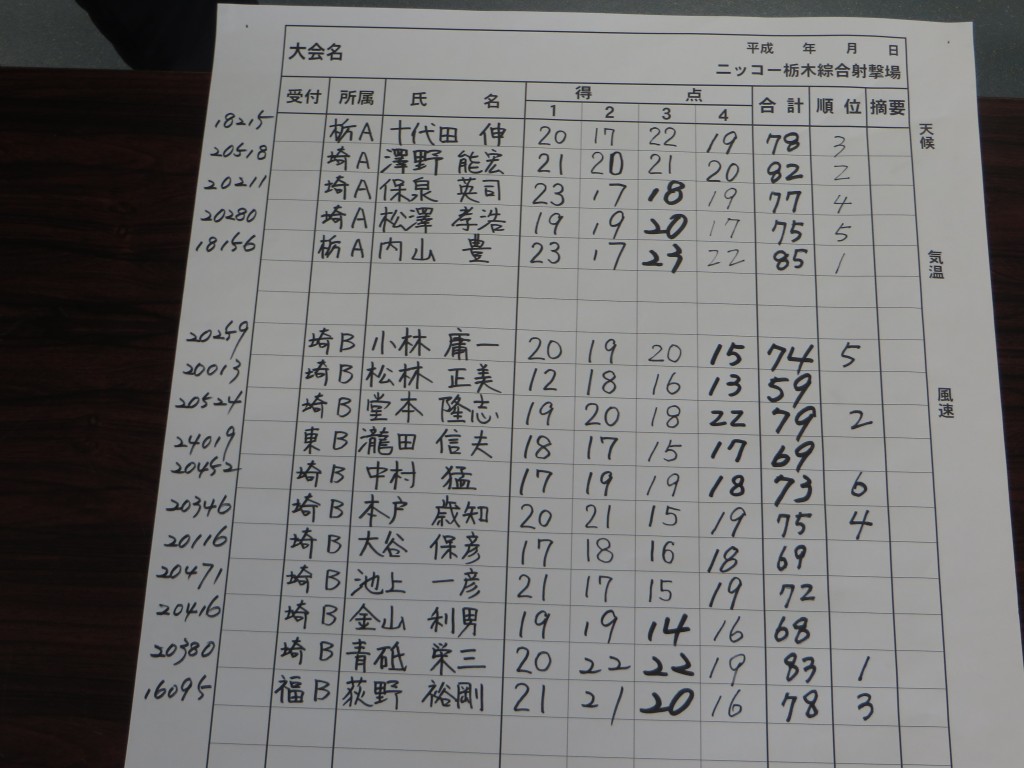 大会名 平成 年 月 日
ニッコー栃木綜合射撃場
受付 所属 氏 名 得 点 合計 順位 摘要
1 2 3 4
天候
18215 栃A 十代田 伸 20 17 22 19 78 3
20518 埼A 澤野 能宏 21 20 21 20 82 2
20211 埼A 保泉 英司 23 17 18 19 77 4
20280 埼A 松澤 孝浩 19 19 20 17 75 5
18156 栃A 内山 豊 23 17 23 22 85 1
気温
20259 埼B 小林 庸一 20 19 20 15 74 5
20013 埼B 松林 正美 12 18 16 13 59
風速
20524 埼B 堂本 隆志 19 20 18 22 79 2
24019 東B 瀧田 信夫 18 17 15 17 69
20452 埼B 中村 猛 17 19 19 18 73 6
20346 埼B 本戸 歳知 20 21 15 19 75 4
20116 埼B 大谷 保彦 17 18 16 18 69
20471 埼B 池上 一彦 21 17 15 19 72
20416 埼B 金山 利男 19 19 14 16 68
20380 埼B 青砥 栄三 20 22 22 19 83 1
16095 福B 荻野 裕剛 21 21 20 16 78 3